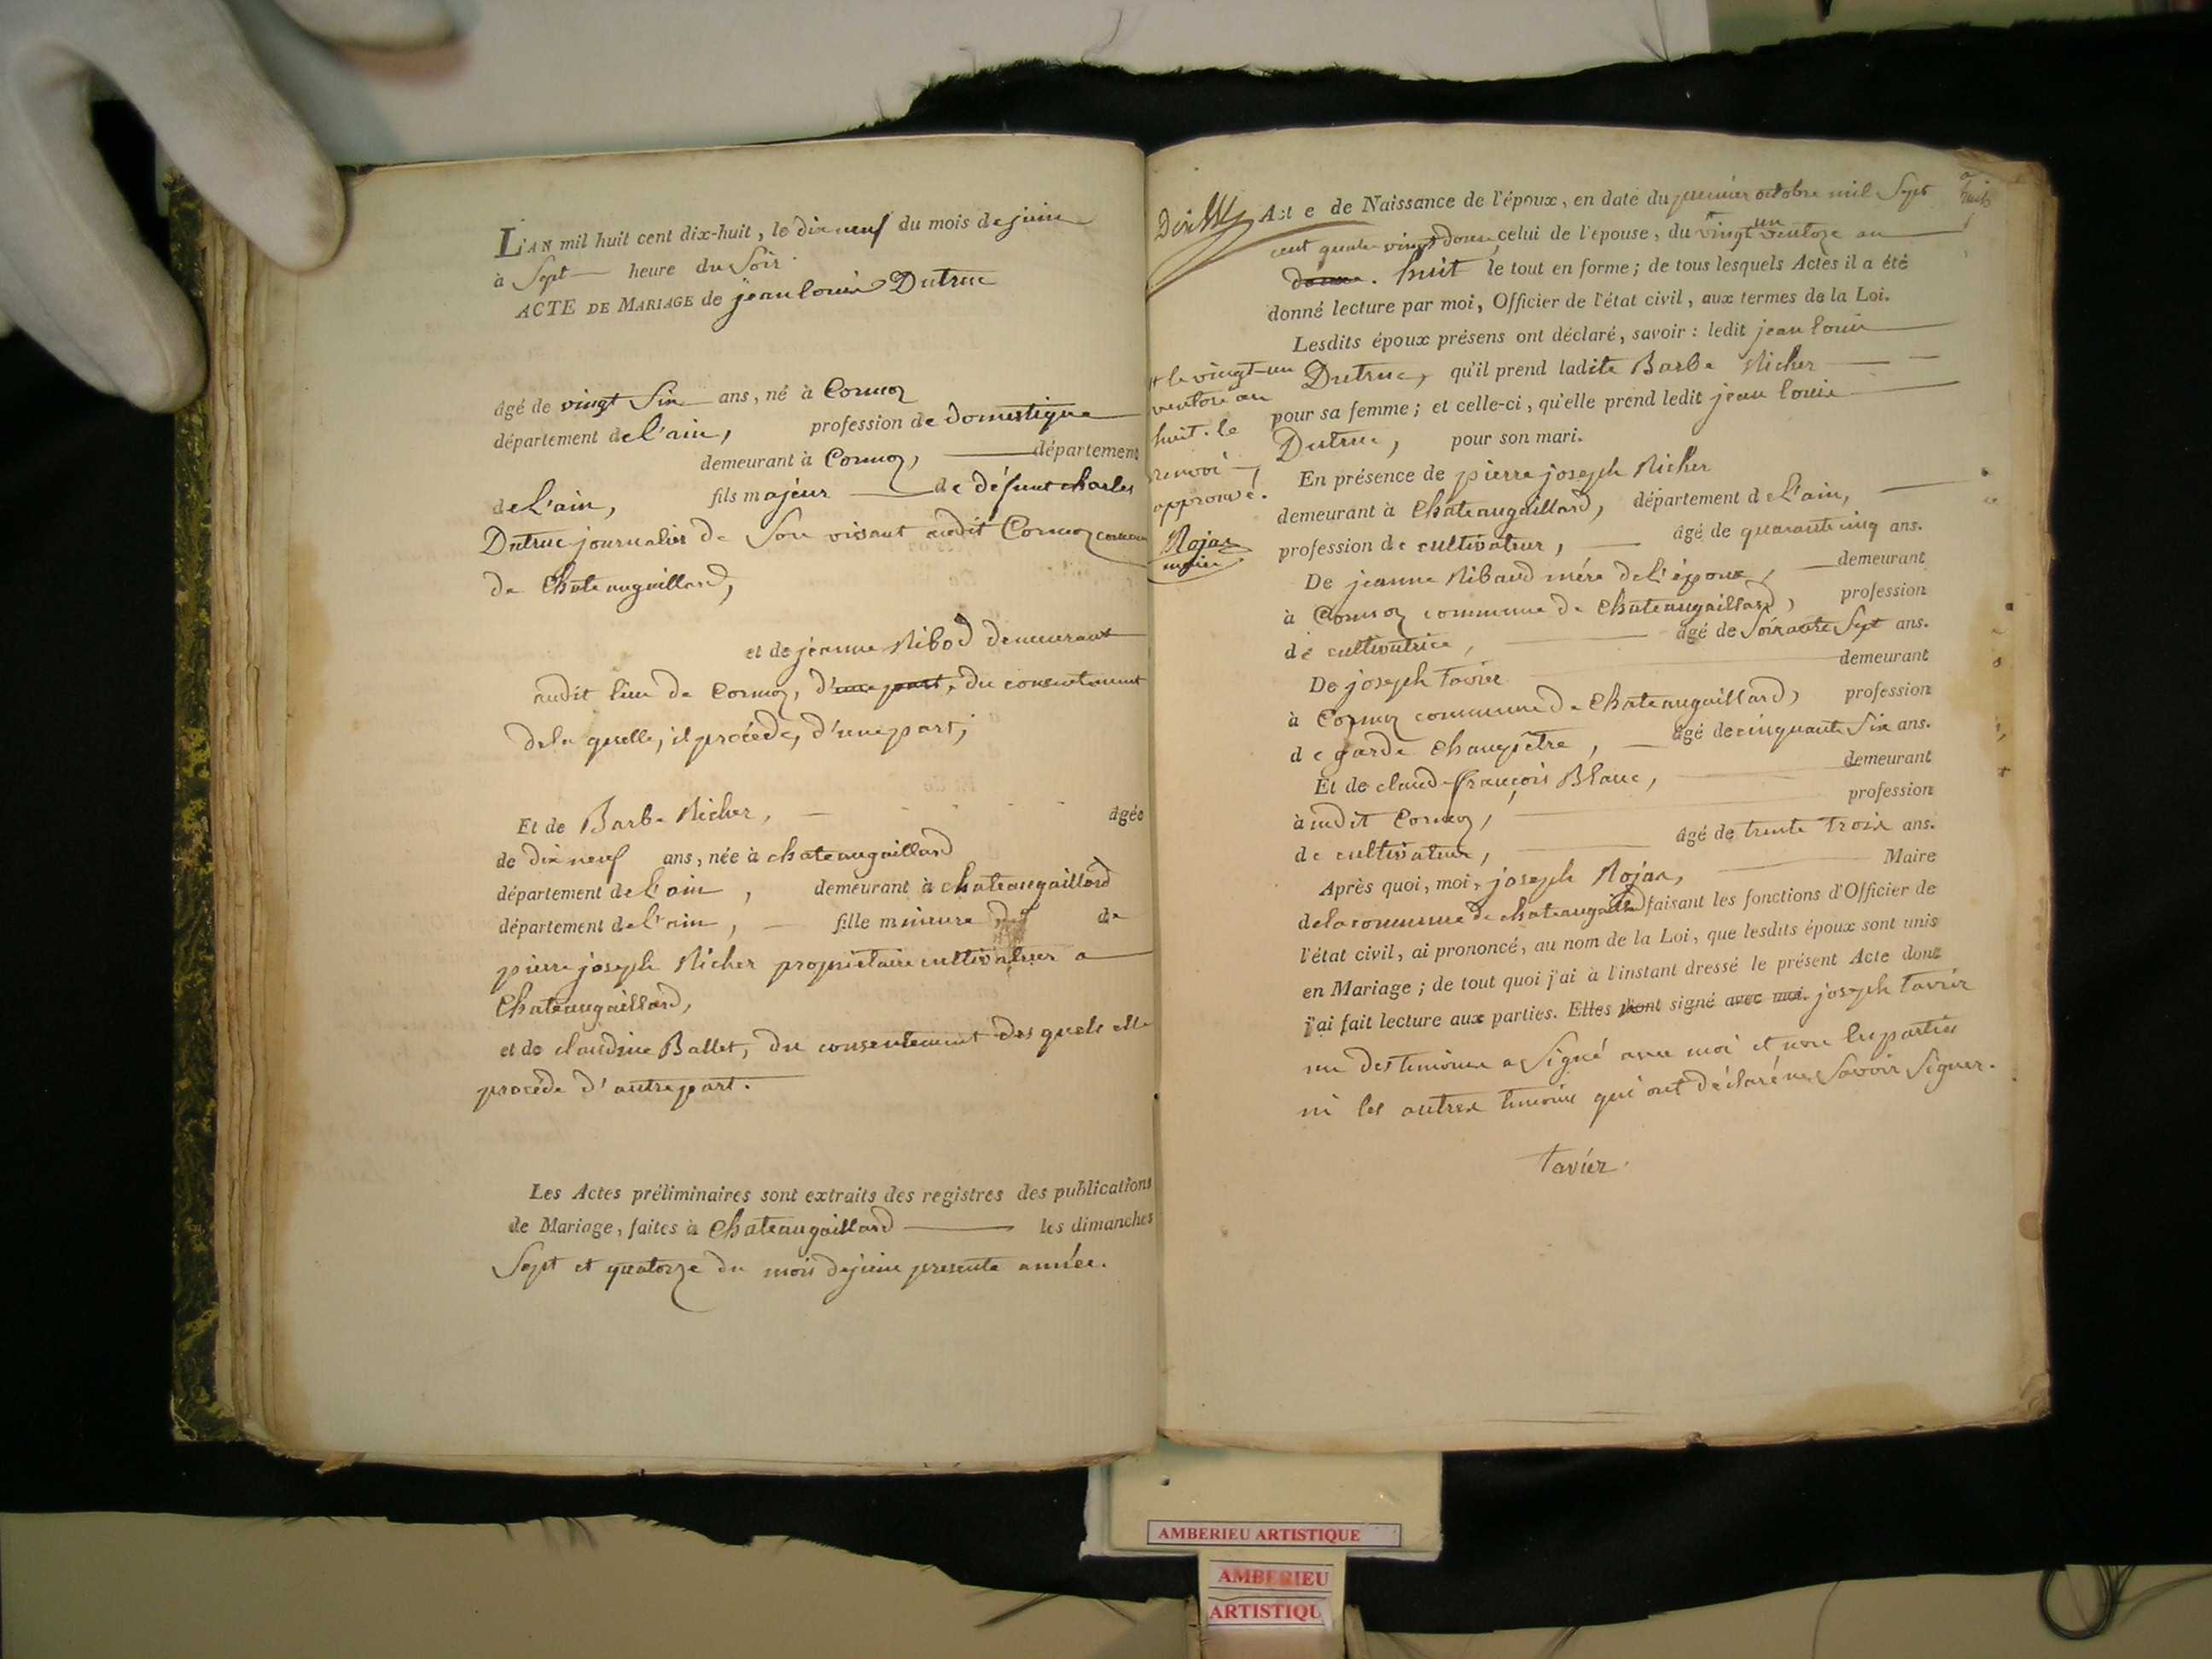 L'AN mil huit cent dix-huit, le dix neuf du mois de juin
à Sept heure du Soir.
ACTE DE MARIAGE de jean louis Dutruc
âgé de vingt Six ans, né à Cormoz
département de L'ain, profession de domestique
demeurant à Cormoz, département
de L'ain, fils majeur de défunt charles
Dutruc journalier de Son vivant audit Cormoz commune
de Chateaugaillard,
et de jeanne Ribod demeurant
audit lieu de Cormoz, d'une part, du consentement
de la quelle, il procéde, d'une part;
Et de Barbe Richer, âgée
de dix neuf ans, née à chateaugaillard
département de l'ain, demeurant à chateaugaillard
département de l'ain, fille mineure de
pierre joseph Richer propriétaire cultivateur a
Chateaugaillard,
et de claudine Ballet, du consentement des quels elle
procéde d'autre part.
Les Actes préliminaires sont extraits des registres des publications
de Mariage, faites à Chateaugaillard les dimanches
Sept et quatorze du mois de juin presente année.
Acte de Naissance de l'époux, en date du premier octobre mil Sept
cent quatre vingt douze, celui de l'épouse, du vingt un ventoze an huit
douze. huit le tout en forme; de tous lesquels Actes il a été
donné lecture par moi, Officier de l'état civil, aux termes de la Loi.
Lesdits époux présens ont déclaré, savoir : ledit jean louis
Dutruc, qu'il prend ladite Barbe Richer
pour sa femme; et celle-ci, qu'elle prend ledit jean louis
Dutruc, pour son mari.
En présence de pierre joseph Richer
demeurant à Chateaugaillard, département de L'ain,
profession de cultivateur, âgé de quarante cinq ans.
De jeanne Ribaud mére de l'époux, demeurant
à Cormoz commune de Chateaugaillard, profession
de cultivatrice, âgé de Soixante Sept ans.
De joseph Tavier demeurant
à Cormoz commune de Chateaugaillard, profession
de garde champêtre, âgé de cinquante Six ans.
Et de claude françois Blanc, demeurant
à audit Cormoz, profession
de cultivateur, âgé de trente Trois ans.
Après quoi, moi, joseph Rojan, Maire
de la commune de chateaugaillard faisant les fonctions d'Officier de
l'état civil, ai prononcé, au nom de la Loi, que lesdits époux sont unis
en Mariage; de tout quoi j'ai à l'instant dressé le présent Acte dont
j'ai fait lecture aux parties. Elles ont signé avec moi. joseph Tavier
un des temoins a Signé avec moi et non les parties
ni les autres temoins qui ont déclaré ne Savoir Signer.
Tavier.
+ le vingt-un
ventose an
huit. le
renvoi
approuvé.
Rojan
maire
AMBERIEU ARTISTIQUE
AMBERIEU
ARTISTIQU